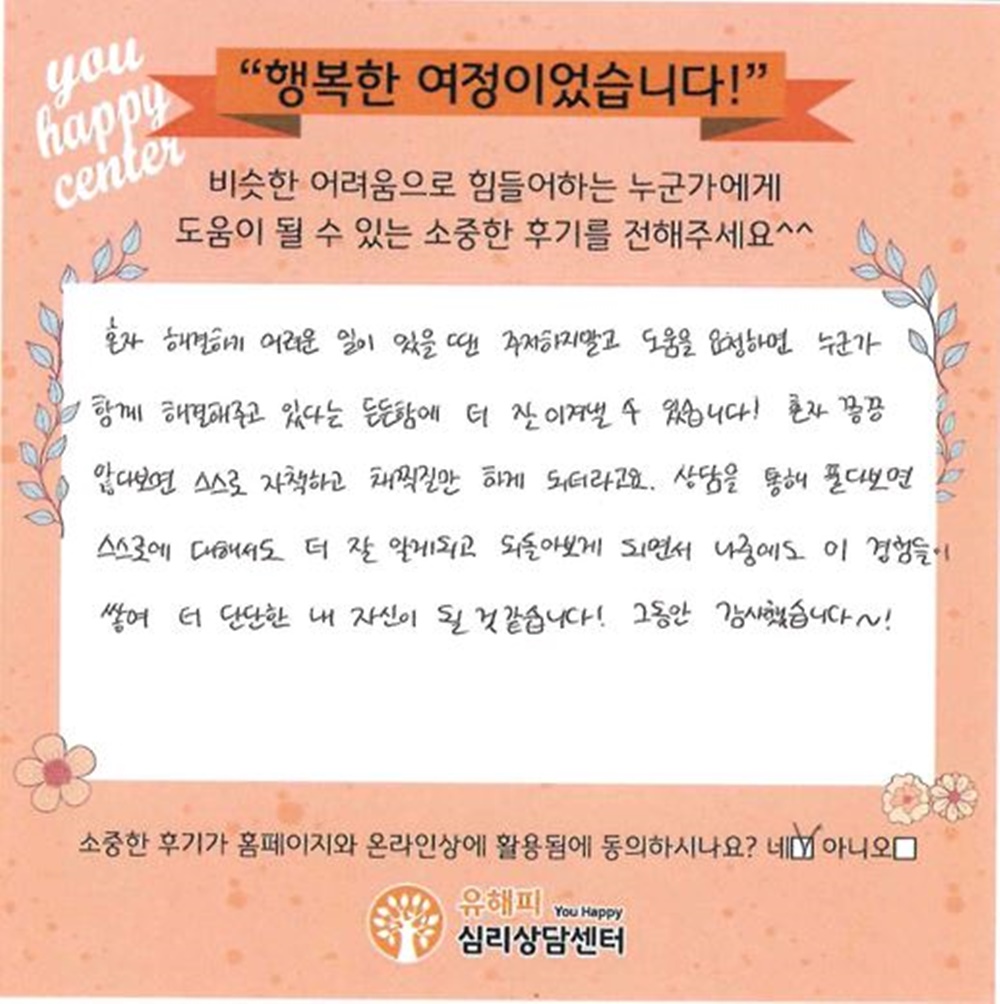 you
happy
center
“행복한 여정이었습니다!”
비슷한 어려움으로 힘들어하는 누군가에게
도움이 될 수 있는 소중한 후기를 전해주세요^^
혼자 해결하기 어려운 일이 있을 땐 주저하지말고 도움을 요청하면 누군가
함께 해결해주고 있다는 든든함에 더 잘 이겨낼 수 있습니다! 혼자 끙끙
앓다보면 스스로 자책하고 채찍질만 하게 되더라고요. 상담을 통해 풀다보면
스스로에 대해서도 더 잘 알게되고 되돌아보게 되면서 나중에도 이 경험들이
쌓여 더 단단한 내 자신이 될 것 같습니다! 그동안 감사했습니다~!
소중한 후기가 홈페이지와 온라인상에 활용됨에 동의하시나요? 네☑ 아니오☐
유해피 You Happy
심리상담센터